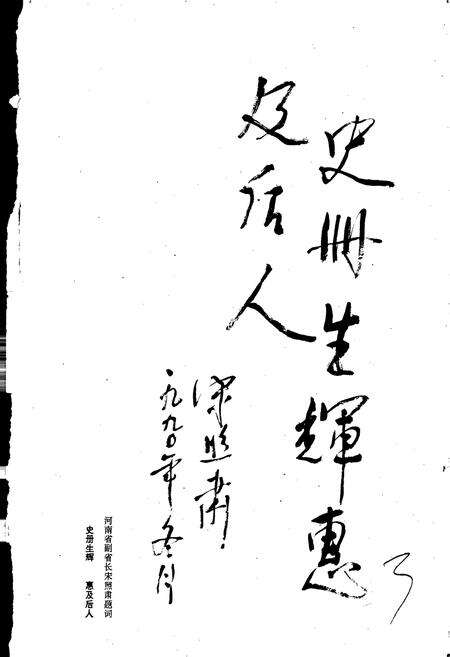 史册生輝惠
及后人
宋照肃
一九九〇年冬月
河南省副省长宋照肃题词
史册生辉 惠及后人